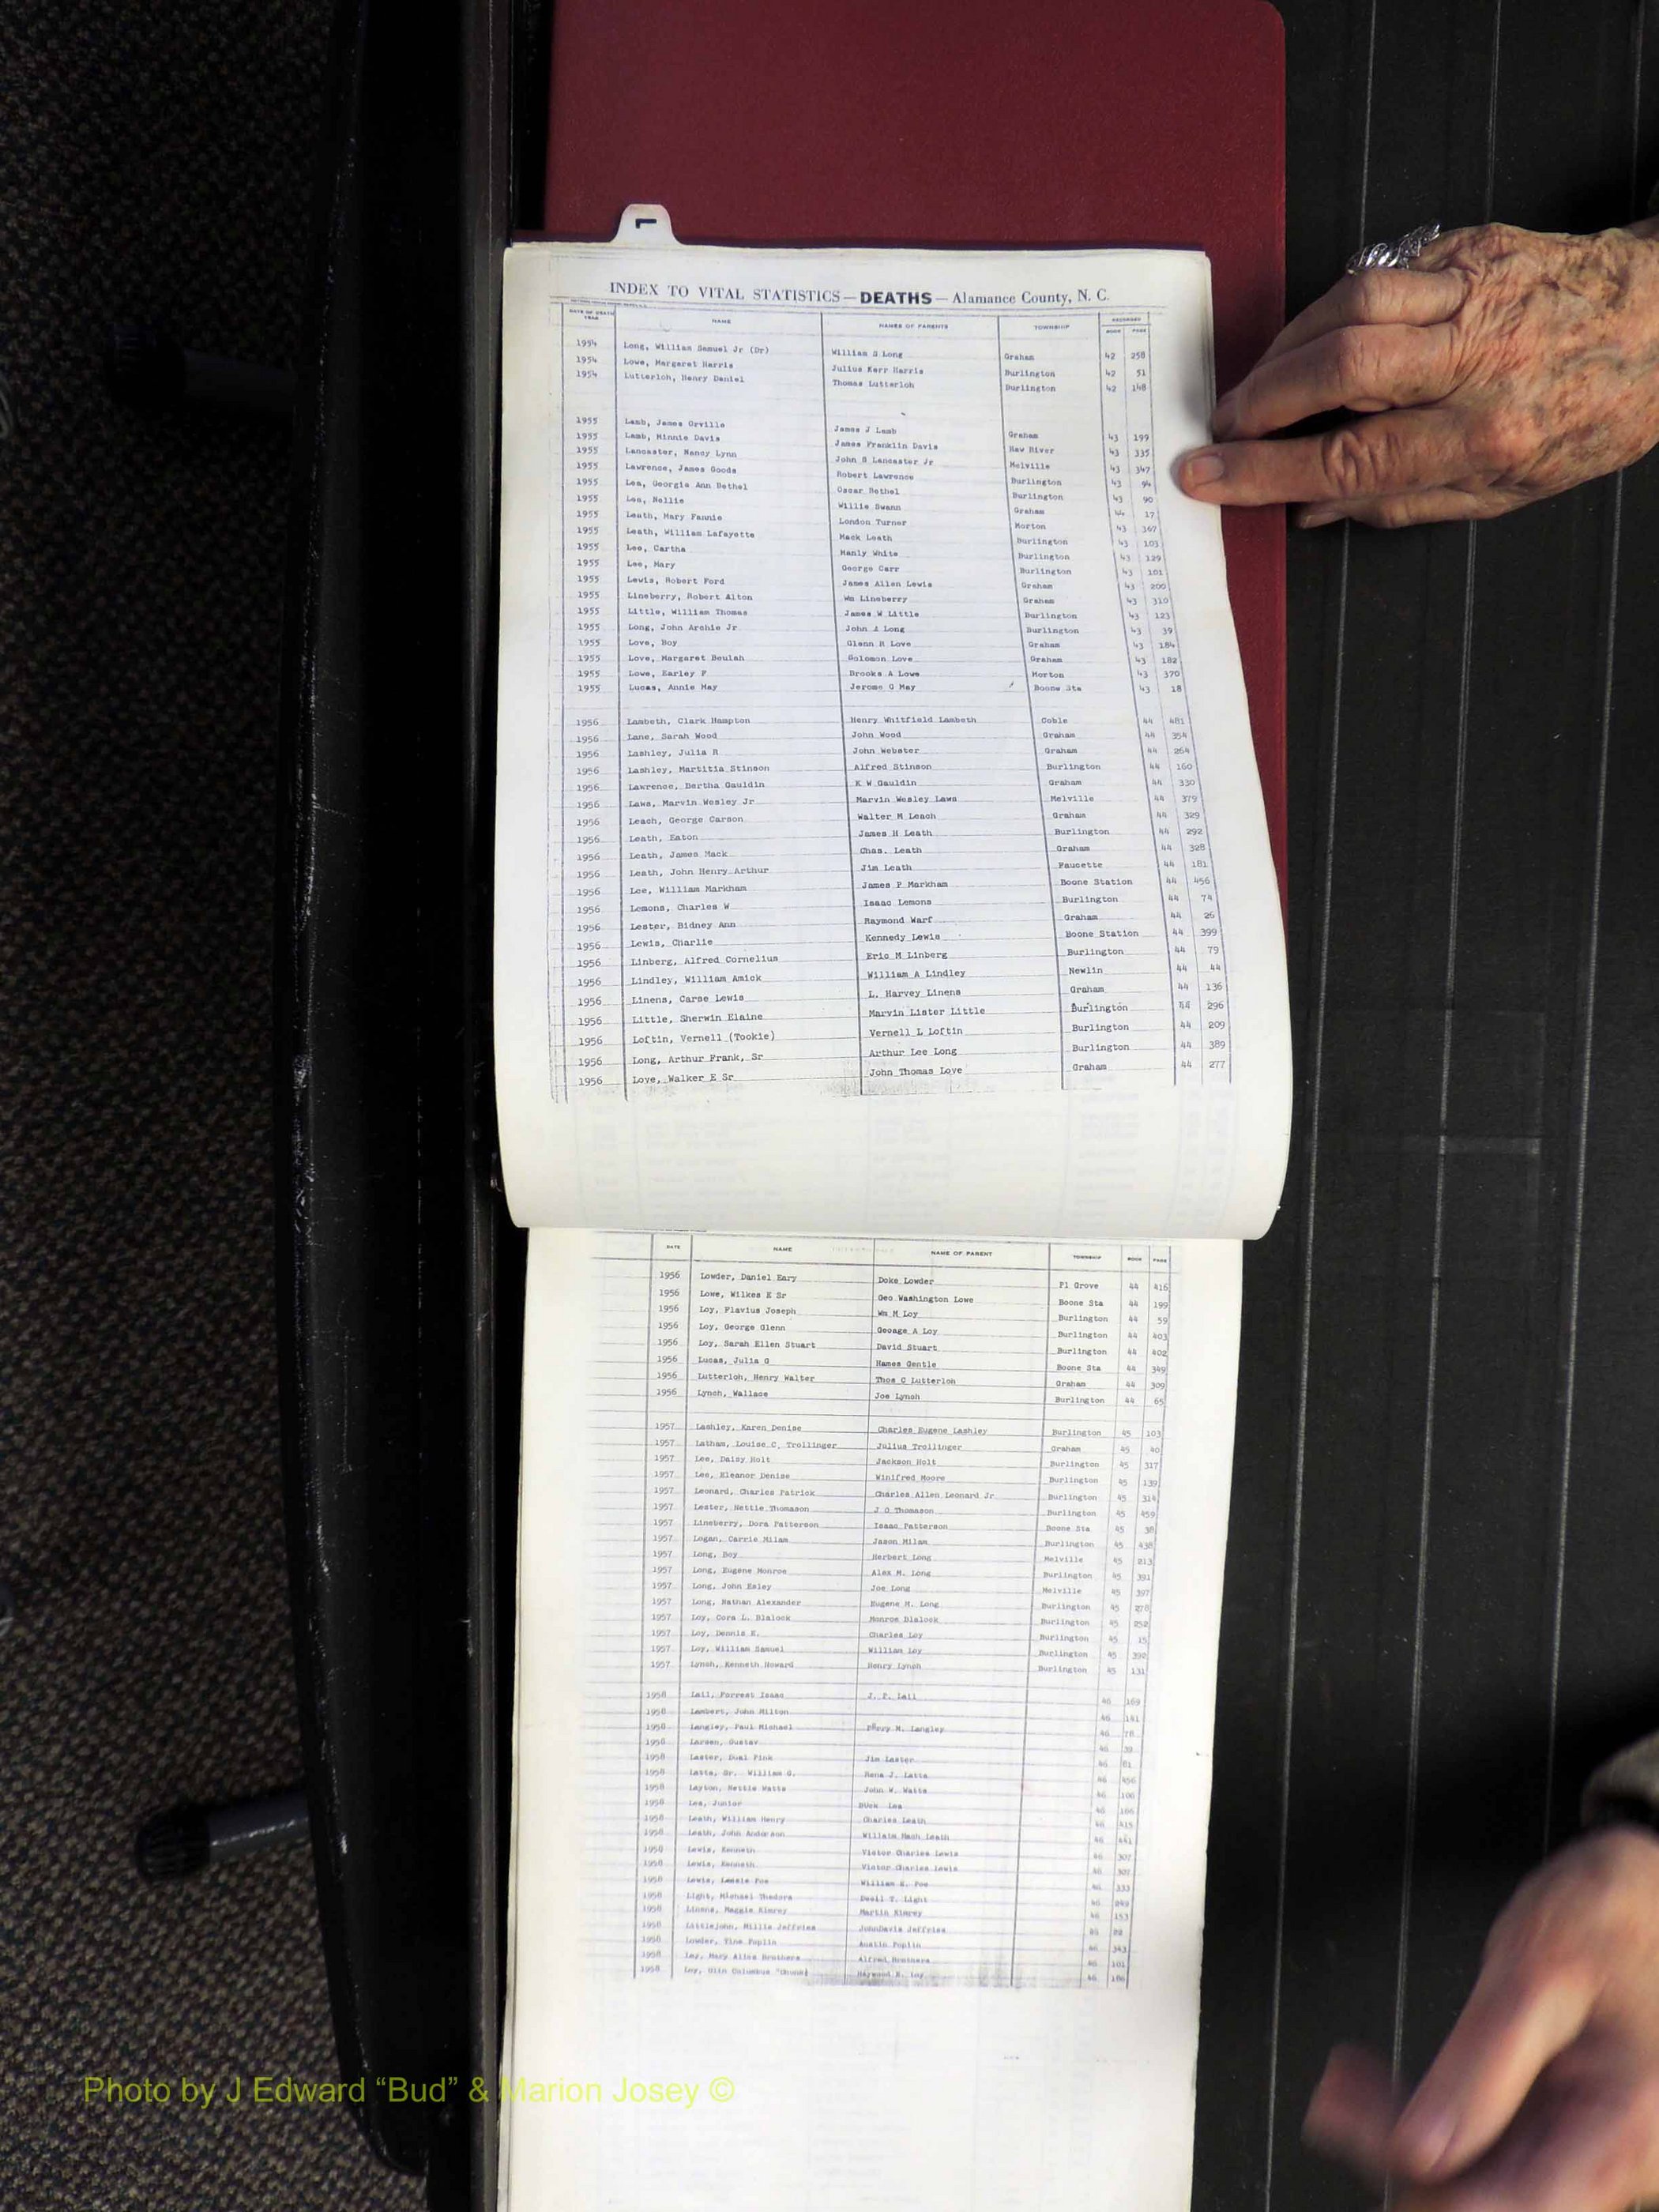 L
INDEX TO VITAL STATISTICS — DEATHS — Alamance County, N. C.
DATE OF DEATH YEAR NAME NAMES OF PARENTS TOWNSHIP RECORDED BOOK PAGE
1954 Long, William Samuel Jr (Dr) William S Long Graham 42 258
1954 Lowe, Margaret Harris Julius Kerr Harris Burlington 42 51
1954 Lutterloh, Henry Daniel Thomas Lutterloh Burlington 42 148
1955 Lamb, James Orville James J Lamb Graham 43 199
1955 Lamb, Minnie Davis James Franklin Davis Haw River 43 335
1955 Lancaster, Nancy Lynn John S Lancaster Jr Melville 43 347
1955 Lawrence, James Goods Robert Lawrence Burlington 43 94
1955 Lea, Georgia Ann Bethel Oscar Bethel Burlington 43 90
1955 Lea, Nellie Willie Swann Graham 44 17
1955 Leath, Mary Fannie London Turner Morton 43 367
1955 Leath, William Lafayette Mack Leath Burlington 43 103
1955 Lee, Cartha Manly White Burlington 43 129
1955 Lee, Mary George Carr Burlington 43 101
1955 Lewis, Robert Ford James Allen Lewis Graham 43 200
1955 Lineberry, Robert Alton Wm Lineberry Graham 43 310
1955 Little, William Thomas James W Little Burlington 43 123
1955 Long, John Archie Jr John J Long Burlington 43 39
1955 Love, Boy Glenn H Love Graham 43 184
1955 Love, Margaret Beulah Solomon Love Graham 43 182
1955 Lowe, Earley F Brooks A Lowe Morton 43 370
1955 Lucas, Annie May Jerome G May Boone Sta 43 18
1956 Lambeth, Clark Hampton Henry Whitfield Lambeth Coble 44 481
1956 Lane, Sarah Wood John Wood Graham 44 354
1956 Lashley, Julia R John Webster Graham 44 264
1956 Lashley, Martitia Stinson Alfred Stinson Burlington 44 160
1956 Lawrence, Bertha Gauldin K W Gauldin Graham 44 330
1956 Laws, Marvin Wesley Jr Marvin Wesley Laws Melville 44 379
1956 Leach, George Carson Walter M Leach Graham 44 329
1956 Leath, Eaton James H Leath Burlington 44 292
1956 Leath, James Mack Chas. Leath Graham 44 328
1956 Leath, John Henry Arthur Jim Leath Faucette 44 181
1956 Lee, William Markham James P Markham Boone Station 44 456
1956 Lemons, Charles W Isaac Lemons Burlington 44 74
1956 Lester, Bidney Ann Raymond Warf Graham 44 26
1956 Lewis, Charlie Kennedy Lewis Boone Station 44 399
1956 Linberg, Alfred Cornelius Eric M Linberg Burlington 44 79
1956 Lindley, William Amick William A Lindley Newlin 44 44
1956 Linens, Carse Lewis L. Harvey Linens Graham 44 136
1956 Little, Sherwin Elaine Marvin Lister Little Burlington 44 296
1956 Loftin, Vernell (Tookie) Vernell L Loftin Burlington 44 209
1956 Long, Arthur Frank, Sr Arthur Lee Long Burlington 44 389
1956 Love, Walker E Sr John Thomas Love Graham 44 277
DATE NAME NAME OF PARENT TOWNSHIP BOOK PAGE
1956 Lowder, Daniel Eary Doke Lowder Pl Grove 44 416
1956 Lowe, Wilkes E Sr Geo Washington Lowe Boone Sta 44 199
1956 Loy, Flavius Joseph Wm M Loy Burlington 44 59
1956 Loy, George Glenn Geoage A Loy Burlington 44 403
1956 Loy, Sarah Ellen Stuart David Stuart Burlington 44 402
1956 Lucas, Julia G Hames Gentle Boone Sta 44 349
1956 Lutterloh, Henry Walter Thos C Lutterloh Graham 44 309
1956 Lynch, Wallace Joe Lynch Burlington 44 65
1957 Lashley, Karen Denise Charles Eugene Lashley Burlington 45 103
1957 Latham, Louise C. Trollinger Julius Trollinger Graham 45 40
1957 Lee, Daisy Holt Jackson Holt Burlington 45 317
1957 Lee, Eleanor Denise Winifred Moore Burlington 45 139
1957 Leonard, Charles Patrick Charles Allen Leonard Jr Burlington 45 314
1957 Lester, Nettie Thomason J O Thomason Burlington 45 459
1957 Lineberry, Dora Patterson Isaac Patterson Boone Sta 45 38
1957 Logan, Carrie Milam Jason Milam Burlington 45 438
1957 Long, Boy Herbert Long Melville 45 213
1957 Long, Eugene Monroe Alex M. Long Burlington 45 391
1957 Long, John Esley Joe Long Melville 45 397
1957 Long, Nathan Alexander Eugene M. Long Burlington 45 278
1957 Loy, Cora L. Blalock Monroe Blalock Burlington 45 252
1957 Loy, Dennis E. Charles Loy Burlington 45 15
1957 Loy, William Samuel William Loy Burlington 45 392
1957 Lynch, Kenneth Howard Henry Lynch Burlington 45 131
1958 Lail, Forrest Isaac J. P. Lail 46 169
1958 Lambert, John Milton 46 141
1958 Langley, Paul Michael Perry M. Langley 46 78
1958 Larsen, Gustav 46 39
1958 Laster, Dual Pink Jim Laster 46 61
1958 Latta, Sr. William G. Rena J. Latta 46 456
1958 Layton, Nettie Watts John W. Watts 46 106
1958 Lea, Junior Buck Lea 46 166
1958 Leath, William Henry Charles Leath 46 415
1958 Leath, John Anderson Leath 46 441
1958 Lewis, Kenneth Victor Charles Lewis 46 307
1958 Lewis, Kenneth Victor Charles Lewis 46 307
1958 Lewis, Lessie Poe William E. Poe 46 333
1958 Light, Michael Thedore T. Light 46 249
1958 Linens, Maggie Kimrey Martin Kimrey 46 153
1958 Littlejohn, Millie Jeffries JohnDavis Jeffries
1958 Lowder, Tina Poplin Austin Poplin 46 343
1958 Loy, Mary Alice Brothers Alfred Brothers 46 101
1958 Loy, Ulin Columbus "Chunk) Haywood Loy 46 186
Photo by J Edward “Bud” & Marion Josey ©